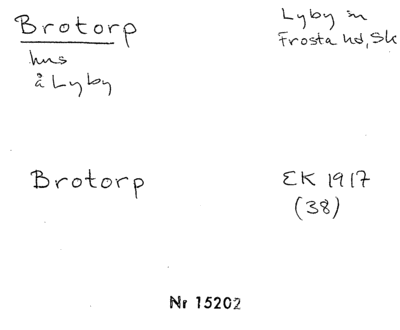 Brotorp
hus
å Lyby
Lyby sn
Frosta hd, Sk
Brotorp
EK 1917
(38)
Nr 15202